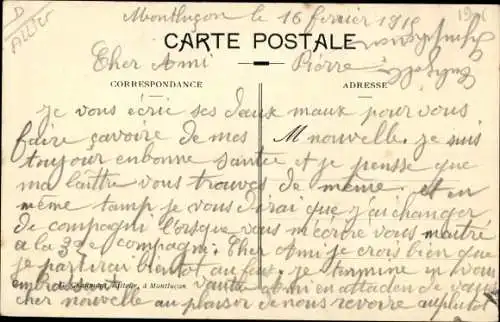 D
ALLIER
Montluçon le 16 fevrier 191
CARTE POSTALE
Cher Ami Pierre
CORRESPONDANCE ADRESSE
je vous écrie ses deux maux pour vous
faire savoire de mes M nouvelle. je suis
toujour enbonne santée et je pensse que
ma laittre vous trouves de même. et en
même tamp je vous dirai que j'ai changer
de compagni l'orsque vous m'ecrire vous maitré
a la 33e compagni. Cher Ami je crois bien que
je partirai bientot au feu. je termine en vous
embra Editeur, à Montluçon ami en attenden de vous
cher nouvelle au plaisir de nous revoire auplutot